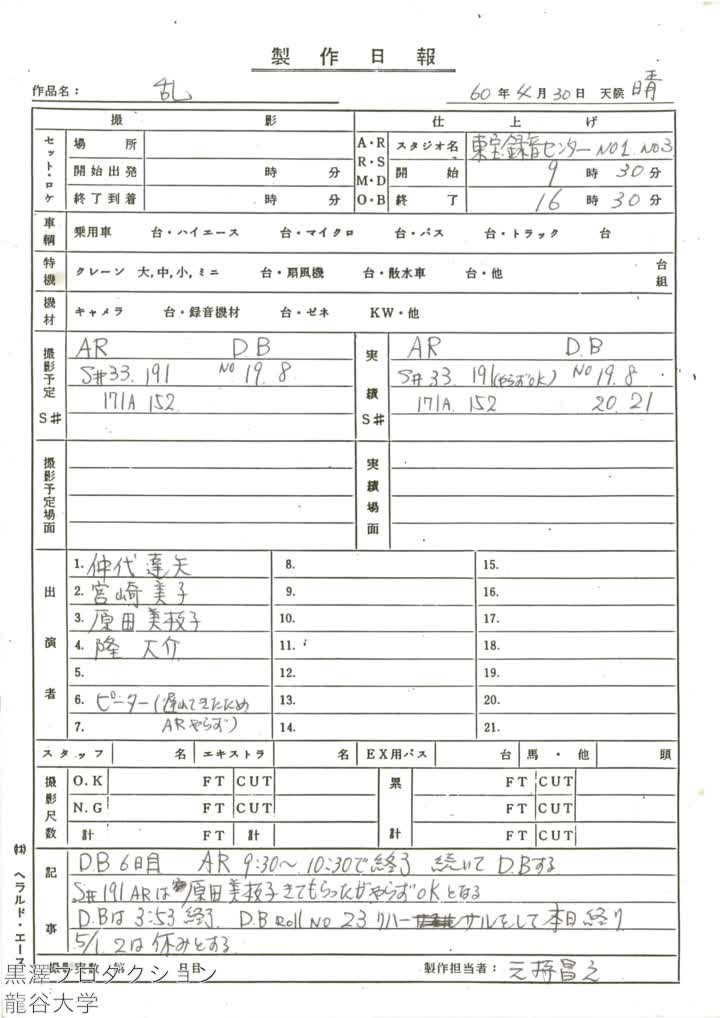 製作日報
作品名： 乱 60年4月30日 天候 晴
撮影 仕上げ
セット・ロケ 場所 A・R R・S M・D O・B スタジオ名 東宝録音センター NO1. NO3
開始出発 時 分 開始 9時30分
終了到着 時 分 終了 16時30分
車輌 乗用車 台・ハイエース 台・マイクロ 台・バス 台・トラック 台
特機 クレーン 大,中,小,ミニ 台・扇風機 台・散水車 台・他 台組
機材 キャメラ 台・録音機材 台・ゼネ KW・他
撮影予定 S♯ AR D.B 実績 S♯ AR D.B
S#33. 191 NO 19. 8 S#33. 191(やらずOK) NO 19. 8
171A 152 171A. 152 20. 21
撮影予定場面 実績場面
出演者
1. 仲代達矢 8. 15.
2. 宮崎美子 9. 16.
3. 原田美枝子 10. 17.
4. 隆大介 11. 18.
5. 12. 19.
6. ピーター(遅れてきたため 13. 20.
7. ARやらず) 14. 21.
スタッフ 名 エキストラ 名 EX用バス 台 馬・他 頭
撮影尺数 O.K FT CUT 累計 FT CUT
N.G FT CUT FT CUT
計 FT 計 FT CUT
記事 D.B 6日目 AR 9:30～10:30で終了 続いて D.Bする
S#191 ARは原田美枝子きてもらったがやらずOKとなる
D.Bは 3:53 終了. D.B Roll No 23 リハーサルをして本日終り
5/1. 2は休みとする
撮影実数 第 日目 製作担当者：元持昌之
㈱ ヘラルド・エース
黒澤プロダクション
龍谷大学